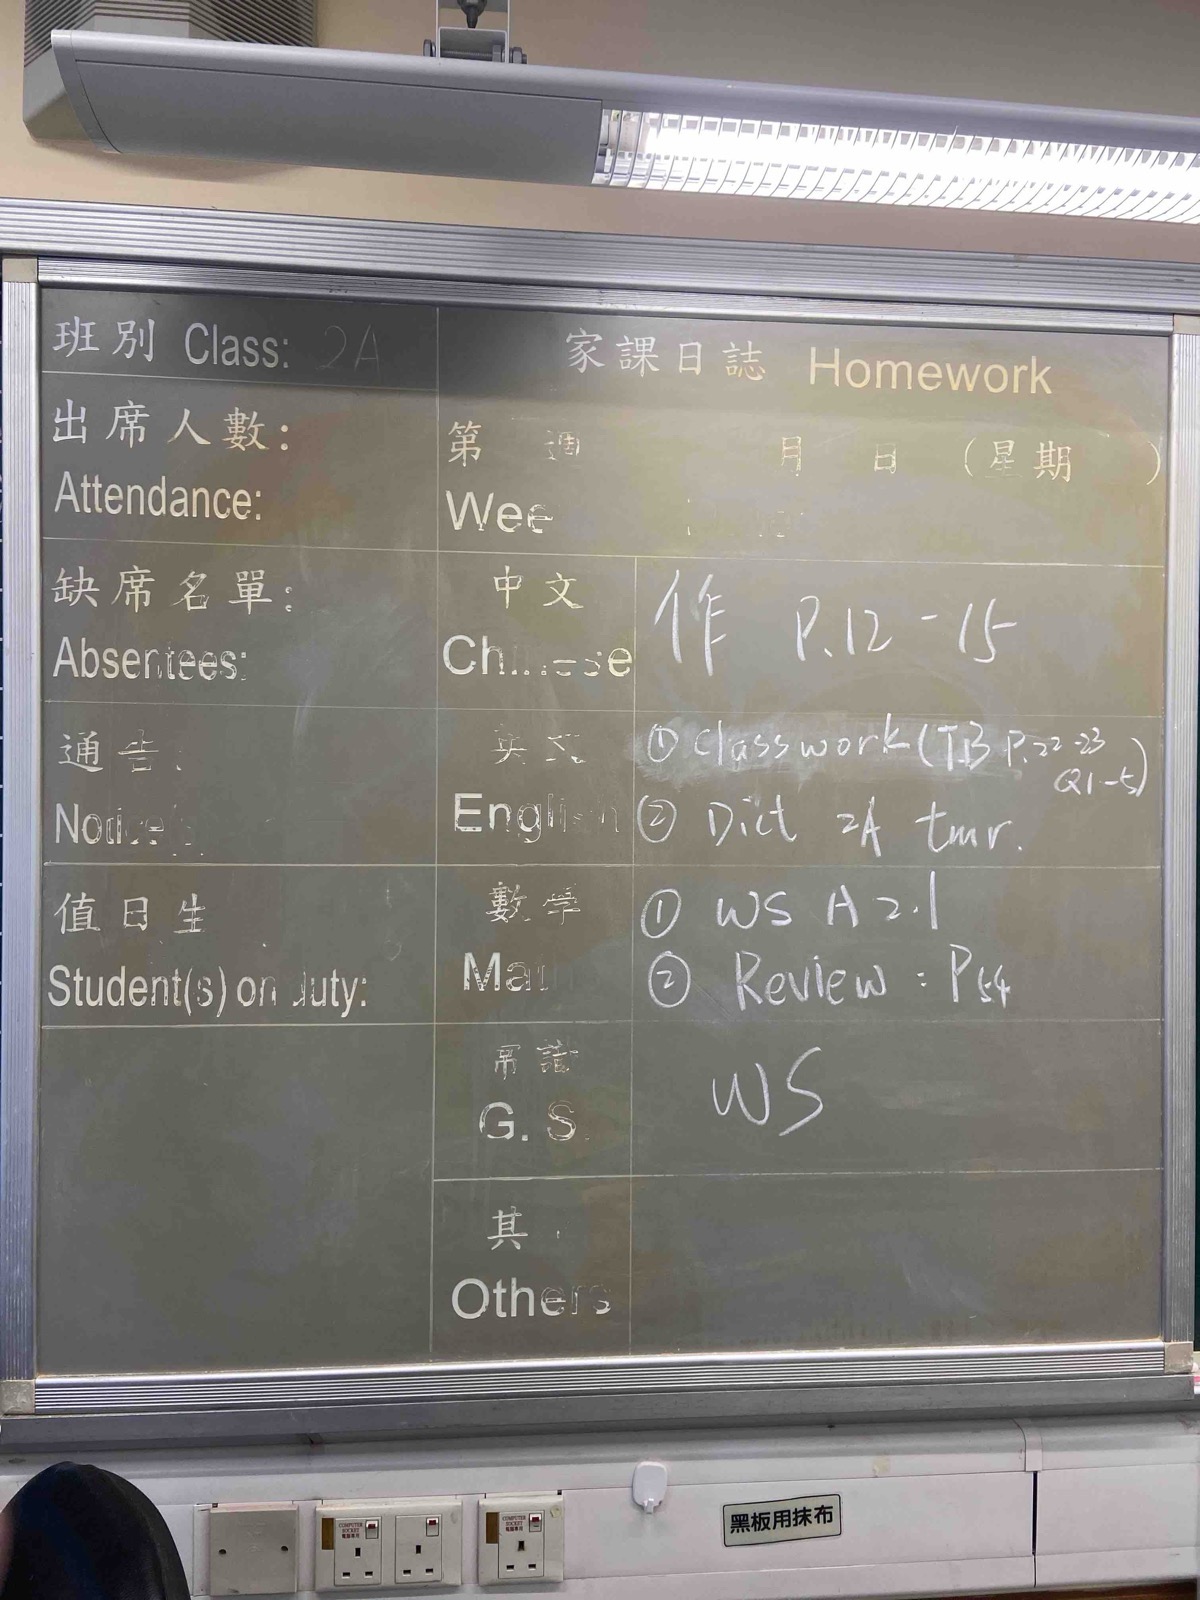 班別 Class: 2A
出席人數:
Attendance:
缺席名單:
Absentees:
通告:
Notice
值日生
Student(s) on duty:
家課日誌 Homework
第 週 月 日 (星期 )
Wee
中文 作 P.12-15
Chinese
英文 ① Classwork (T.B P.22-23
Q1-5)
English ② Dict 2A tmr.
數學 ① WS A 2.1
Ma ② Review : P54
常識
G. S. WS
其
Others
COMPUTER SOCKET
電腦專用
COMPUTER SOCKET
電腦專用
黑板用抹布